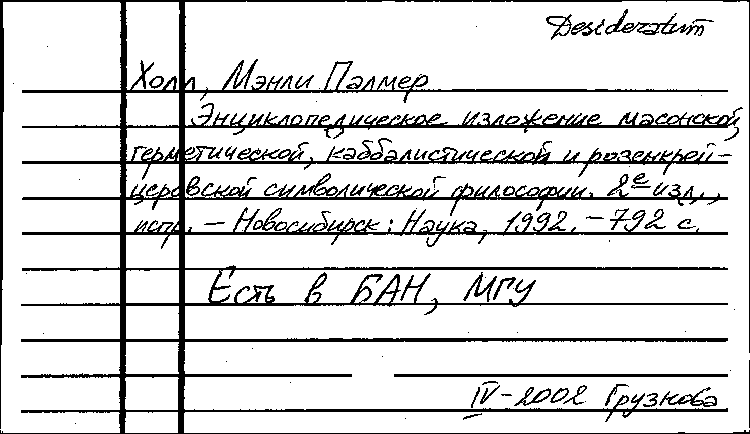 Desideratum
Холл, Мэнли Палмер
Энциклопедическое изложение масонской,
герметической, каббалистической и розенкрей-
церовской символической философии. 2е изд.,
испр. – Новосибирск: Наука, 1992. – 792 с.
Есть в БАН, МГУ
IV-2002 Грузнова